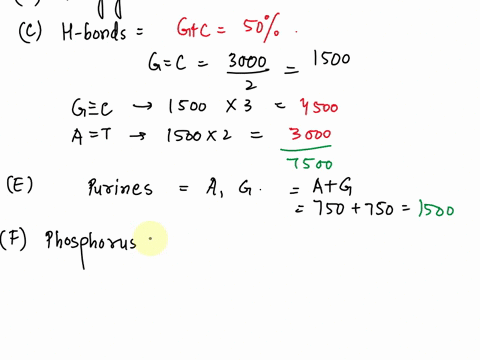 (C) H-bonds = G+C = 50%.
G=C = 3000/2 = 1500
G≡C → 1500 × 3 = 4500
A=T → 1500 × 2 = 3000
7500
(E) Purines = A, G. = A+G
= 750 + 750 = 1500
(F) Phosphorus